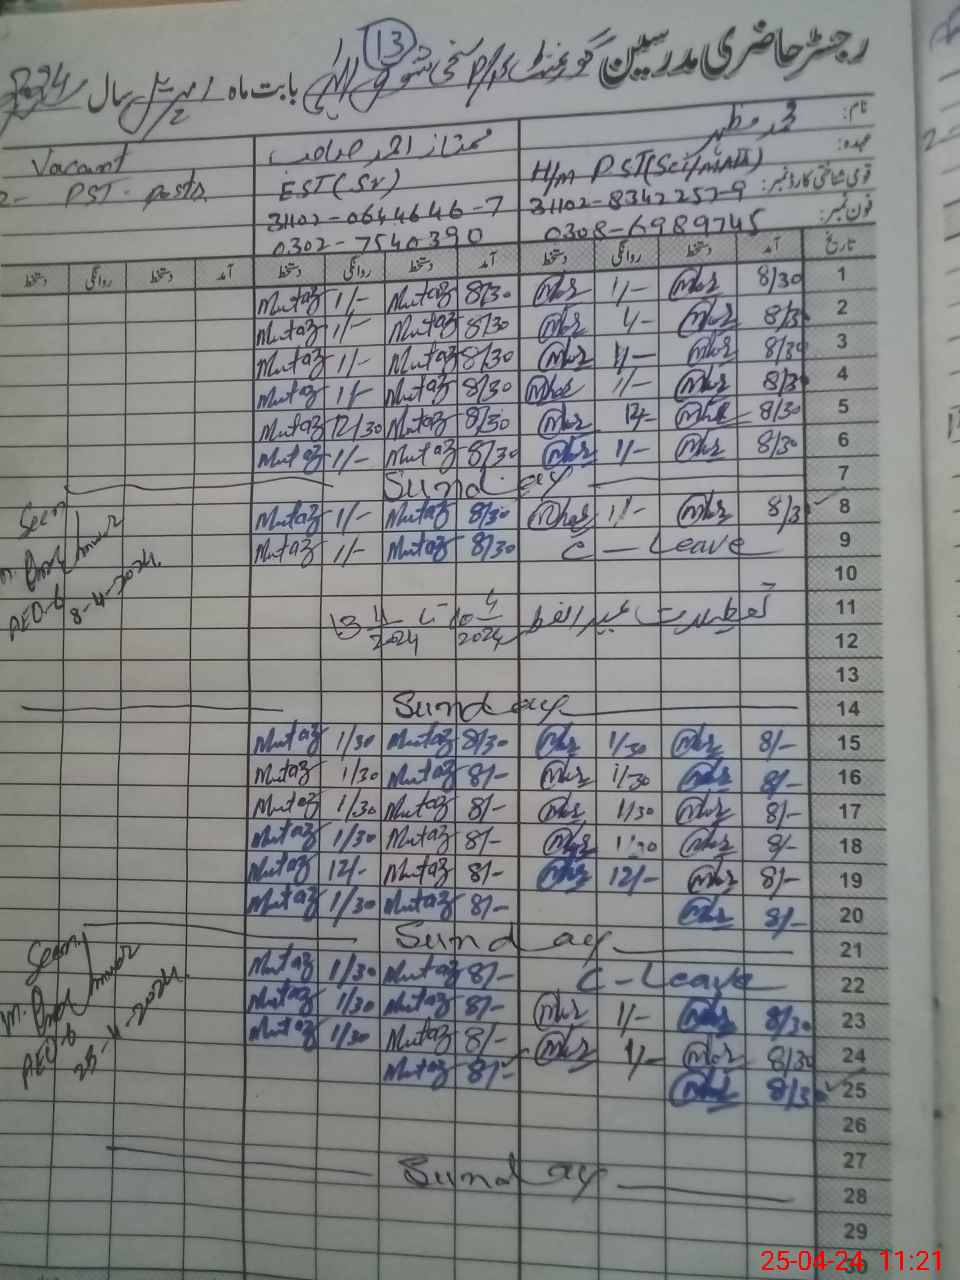 13
رجسٹر حاضری مدرسین گورنمنٹ بابت ماہ اپریل سال 2024
نام: محمد مظہر ممتاز احمد صاحب Vacant
عہدہ: H/m PST(Sci/math) EST(Sr) 2- PST- posts
قومی شناختی کارڈ نمبر: 31102-8342257-9 31102-0644646-7
فون نمبر: 0308-6989745 0302-7540390
تاریخ آمد دستخط روانگی دستخط آمد دستخط روانگی دستخط آمد دستخط روانگی دستخط
Mutaz 1/- Mutaz 8/30 1/- 8/30 1
Mutaz 1/- Mutaz 8/30 1/- 8/30 2
Mutaz 1/- Mutaz 8/30 1/- 8/30 3
Mutaz 1/- Mutaz 8/30 1/- 8/30 4
Mutaz 12/30 Mutaz 8/30 12- 8/30 5
Mutaz 1/- Mutaz 8/30 1/- 8/30 6
Sunday 7
Mutaz 1/- Mutaz 8/30 1/- 8/30 8
Mutaz 1/- Mutaz 8/30 C-Leave 9
Seen
AEO-6
8-4-2024
10
تعطیلات عید الفطر 10-4-2024 تا 13-4-2024 11
12
13
Sunday 14
Mutaz 1/30 Mutaz 8/30 1/30 8/- 15
Mutaz 1/30 Mutaz 8/- 1/30 8/- 16
Mutaz 1/30 Mutaz 8/- 1/30 8/- 17
Mutaz 1/30 Mutaz 8/- 1/30 8/- 18
Mutaz 12/- Mutaz 8/- 12/- 8/- 19
Mutaz 1/30 Mutaz 8/- 8/- 20
Sunday 21
Mutaz 1/30 Mutaz 8/- C-Leave 22
Mutaz 1/30 Mutaz 8/- 1/- 8/30 23
Mutaz 1/30 Mutaz 8/- 1/- 8/30 24
Mutaz 8/- 8/30 25
Seen
AEO-6
25-4-2024
26
27
Sunday 28
29
30
25-04-24 11:21